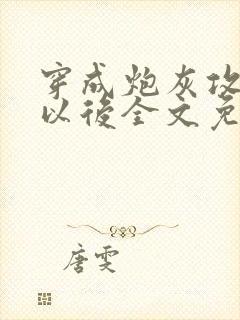 穿成炮灰攻
以後全文免
唐雯